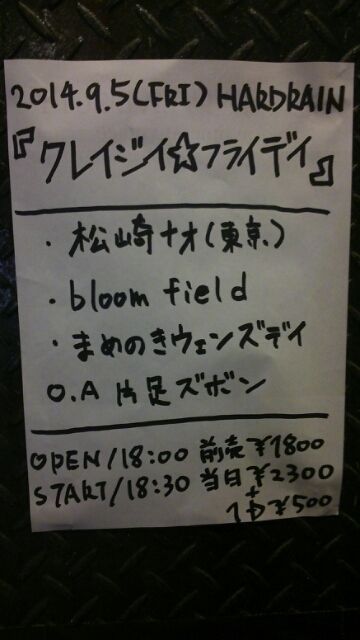 2014.9.5(FRI) HARDRAIN
『クレイジイ☆フライデイ』
・松崎ナオ(東京)
・bloom field
・まめのきウェンズデイ
O.A 片足ズボン
OPEN/18:00 前売¥1800
START/18:30 当日¥2300
+
1D¥500